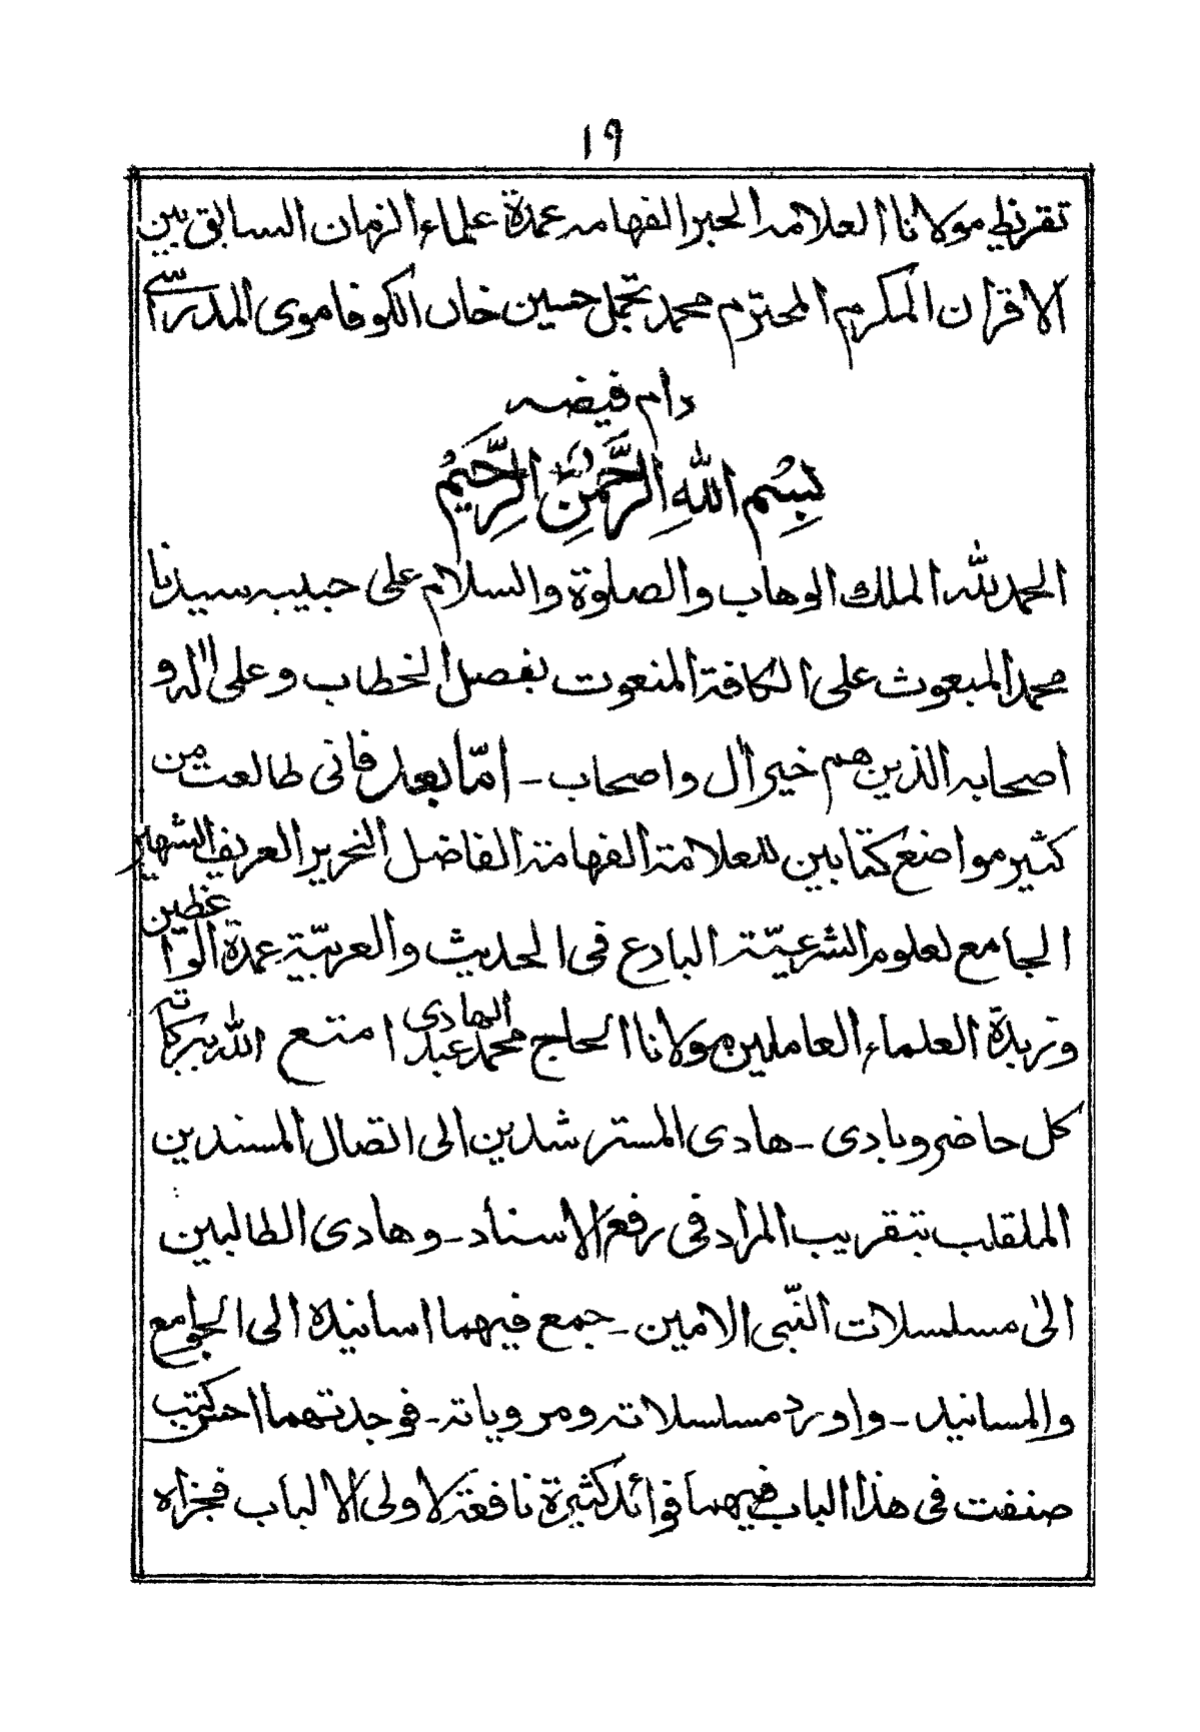 ١٩
تقريظ مولانا العلامه الحبر الفهامه عمدة علماء الزمان السابق بين
الاقران المكرم المحترم محمد تجمل حسين خان الكوفاموى المدراسى
دام فيضه
بِسْمِ اللهِ الرَّحْمٰنِ الرَّحِيْمِ
الحمد لله الملك الوهاب والصلوة والسلام على حبيبه سيدنا
محمد المبعوث على الكافة المنعوت بفصل الخطاب وعلى اله و
اصحابه الذين هم خير اٰل واصحاب - امّا بعد فانى طالعت من
كثير مواضع كتابين للعلامة الفهامة الفاضل النحرير العريف الشهير
الجامع لعلوم الشرعيّة البارع فى الحديث والعربيّة عمدة الواعظين
وزبدة العلماء العاملين مولانا الحاج محمد عبد الهادى امتع الله ببركاته
كل حاضر وبادى - هادى المسترشدين الى اتصال المسندين
الملقلب بتقريب المراد فى رفع الاسناد - وهادى الطالبين
الىٰ مسلسلات النّبى الامين - جمع فيهما اسانيده الى الجوامع
والمسانيد - واورد مسلسلاته ومروياته - فوجدتهما احسن كتب
صنفت فى هذا الباب فيهما فوائد كثيرة نافعة لاولى الالباب فجزاه